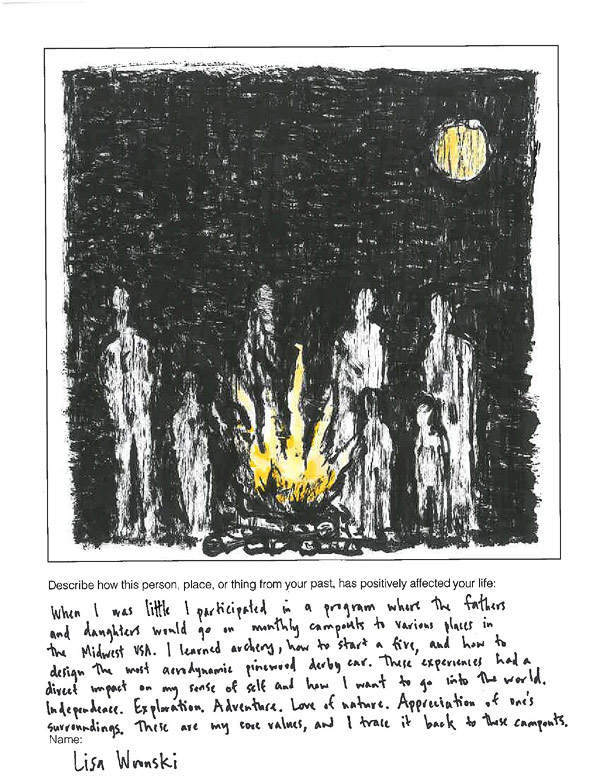 Describe how this person, place, or thing from your past, has positively affected your life:
When I was little I participated in a program where the fathers
and daughters would go on monthly campouts to various places in
the Midwest USA. I learned archery, how to start a fire, and how to
design the most aerodynamic pinewood derby car. These experiences had a
direct impact on my sense of self and how I want to go into the world.
Independence. Exploration. Adventure. Love of nature. Appreciation of one's
surroundings. These are my core values, and I trace it back to those campouts.
Name:
Lisa Wronski